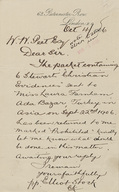 63 Paternoster Row
London
Oct
W. W. Peet Esq
Dear Sir.
The packet containing
6 Stewart Christian
Evidences sent to
Miss Laura
Ada Bazar, Turkey in
Asia on Sept 22nd 1906
has been returned to me
marked Prohibited. Kindly
let me know what should be
done in this matter.
Awaiting your reply
I remain
Yours faithfully
pp Elliot Stock